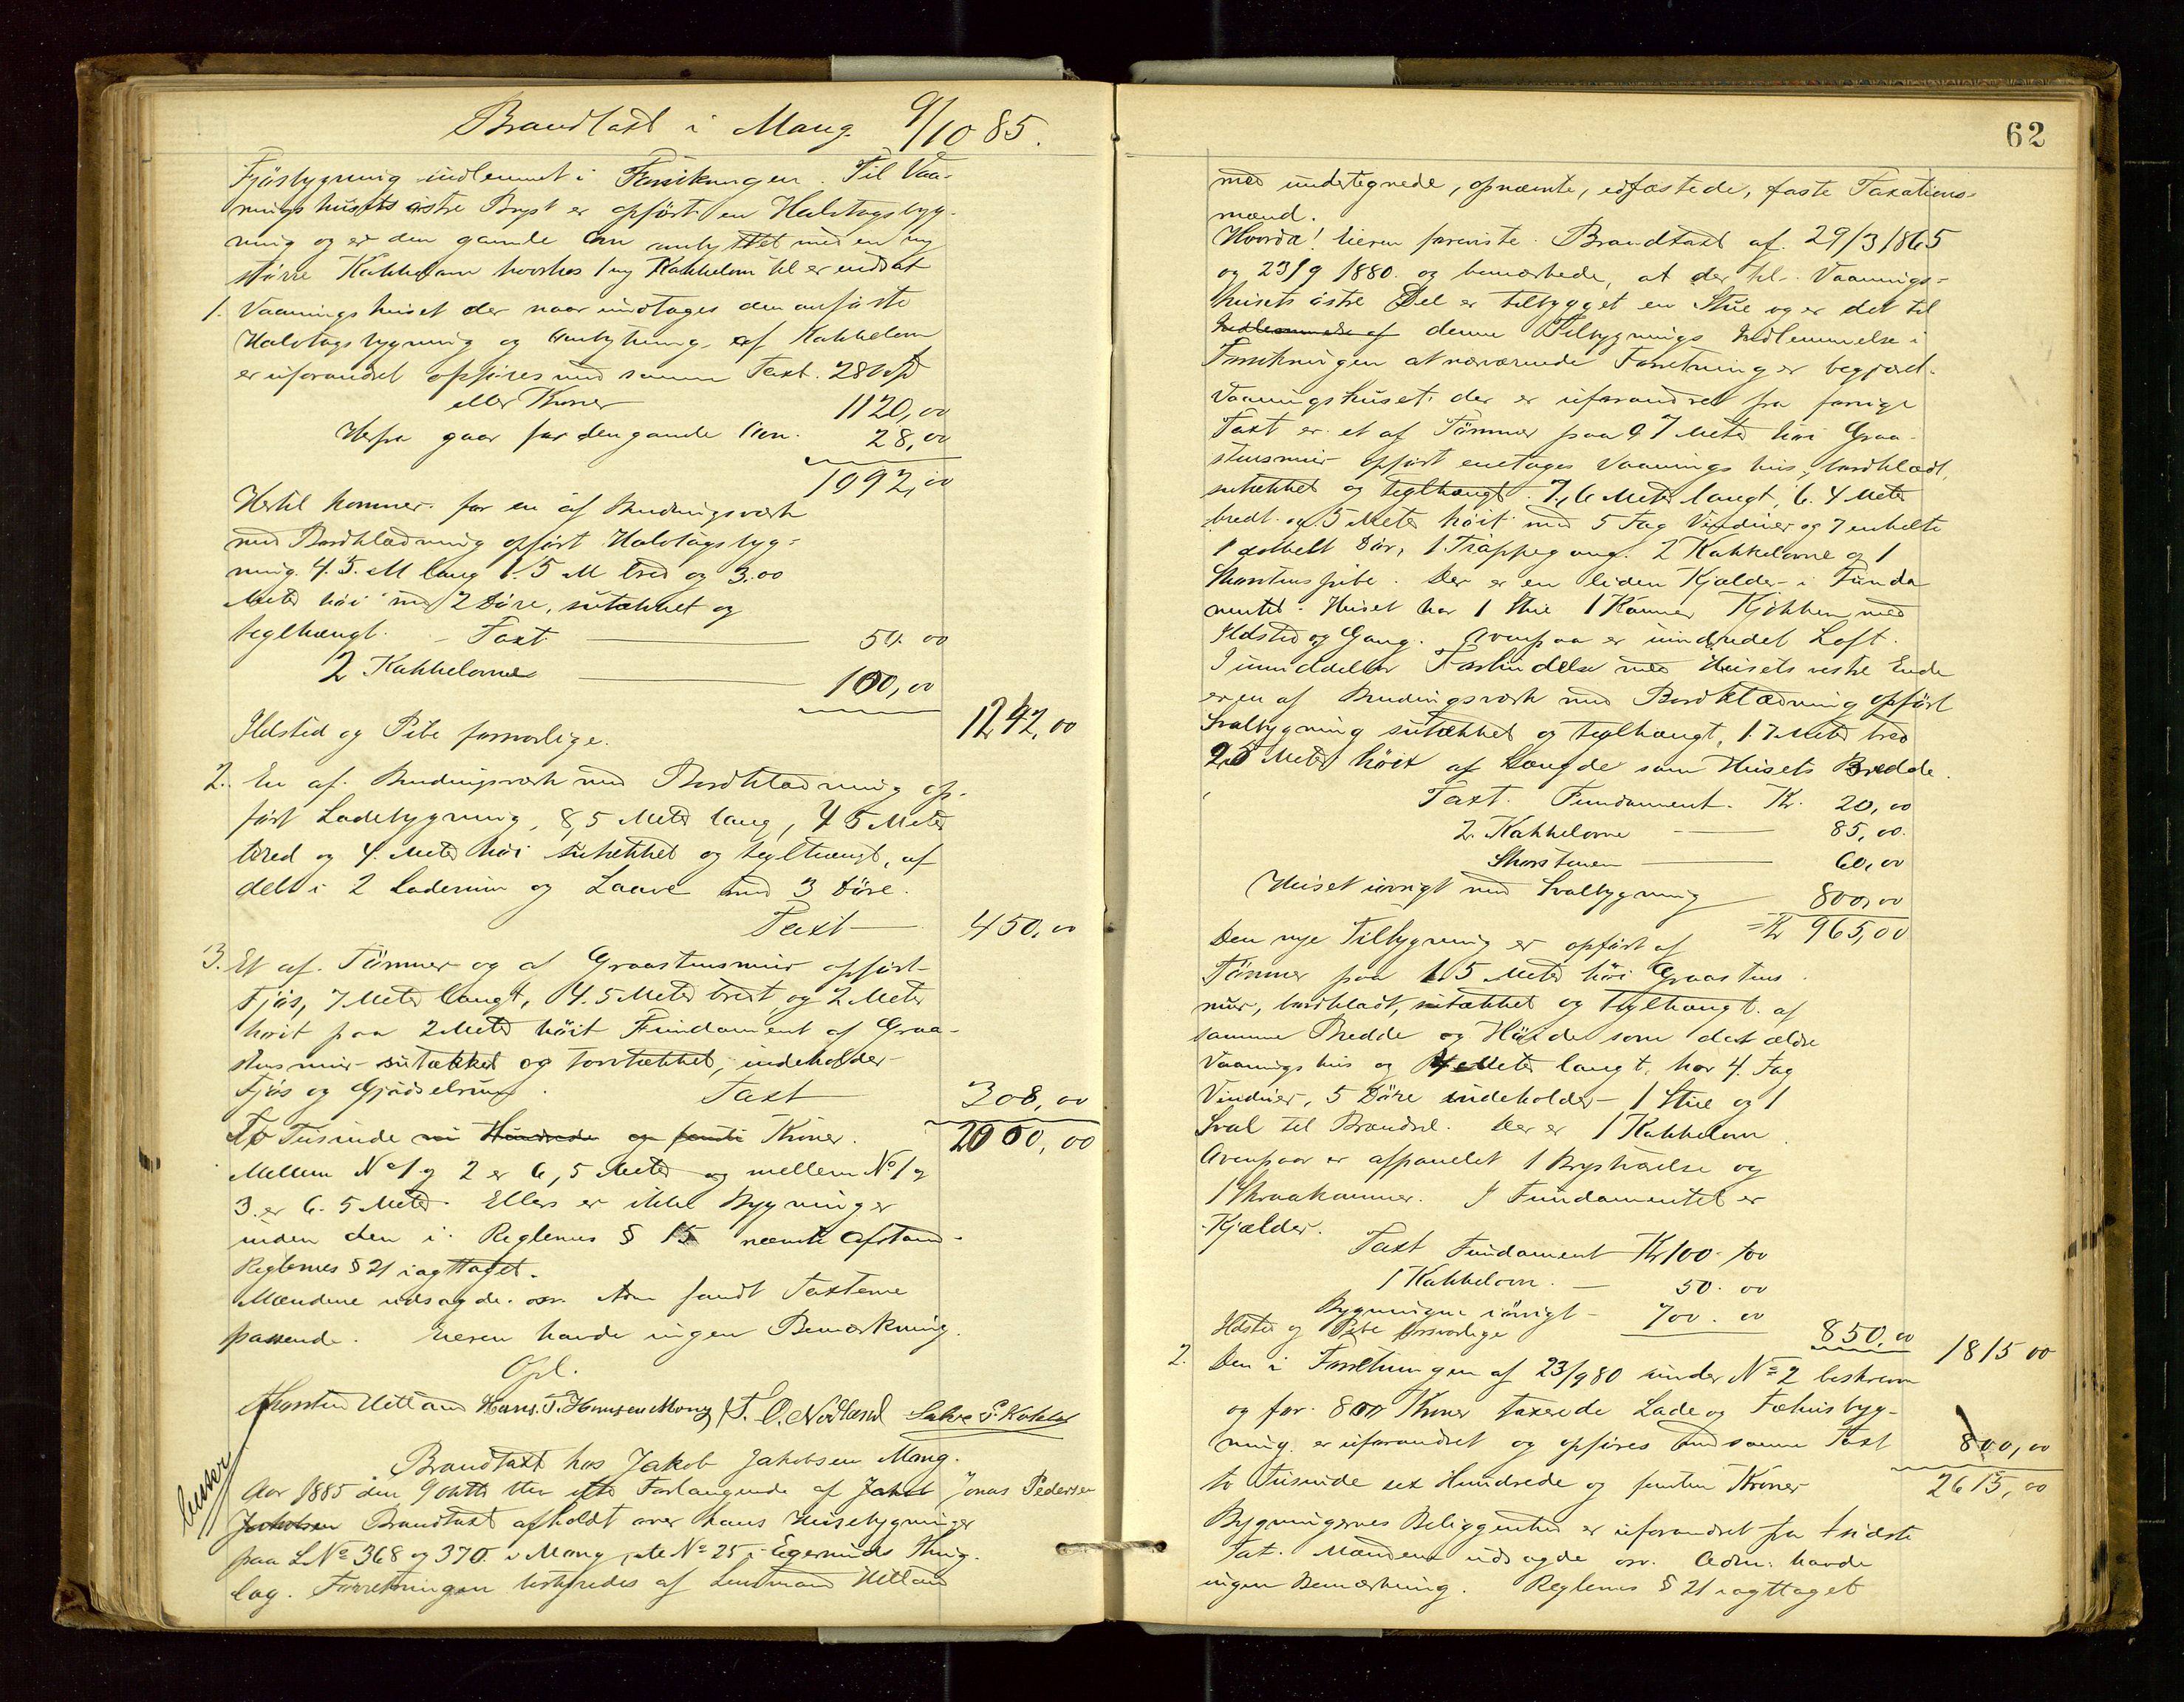 Brandtaxt i Mong 9/10 85.
Fjösbygning indlemmet i Forsikringen. Til Vaa-
ningshusets østre Bryst er opført en Halvtagsbyg-
ning og er den gamle Ovn ombyttet med en ny
større Kakkelovn hvorhos 1 ny Kakkelovn til er indsat
1. Vaaningshuset der naar undtages den anførte
Halvtagsbygning og Ombytning af Kakkelovn
er uforandret opføres med samme Taxt. 280 Spd
eller Kroner 1120,00
Herfra gaar for den gamle Ovn. 28,00
1092,00
Hertil kommer for en af Bindingsværk
med Bordklædning opført Halvtagsbyg-
ning. 4.5. M lang 1.5 M bred og 3.00
Meter høi med 2 Døre, sutækket og
teglhængt. - Taxt 50.00
2 Kakkelovne 100,00
1242,00
Ildsted og Pibe forsvarlige.
2. En af Bindingsværk med Bordklædning op-
ført Ladebygning, 8,5 Meter lang, 4 5 Meter
bred og 4. Meter høi sutækket og teglhængt, af
delt i 2 Laderum og Laave med 3 Døre.
Taxt 450,00
3. Et af Tömmer og af Graastensmur opført
Fjös, 7 Meter langt, 4.5 Meter bredt og 2 Meter
høit paa 2 Meter høit Fundament af Graa-
stensmur sutækket og torvtækket, indeholder
Fjös og Gjödselrum. Taxt 308,00
To Tusinde ni Hundrede og femti Kroner. 2000,00
Mellem No 1 og 2 er 6,5 Meter og mellem No 1 og
3. er 6.5 Meter. Ellers er ikke Bygninger
inden den i Reglernes § 15 nævnte Afstand.
Reglernes § 21 iagttaget.
Mændene udsagde osv. Adm fandt Taxterne
passende. Eieren havde ingen Bemærkning.
Opl.
Thorsten Uetland Hans. T. Hansen Mong T. O. Nodland
Brandtaxt hos Jakob Jakobsen Mong.
Aar 1885 den 9 Oktober blev efter Forlangende af Jakob Jonas Pedersen
Jakobsen Brandtaxt afholdt over hans Husebygninger
paa LNo 368 og 370. i Mong, Mte No 25 i Egersunds Thing-
lag. Forretningen bestyredes af Lensmand Uetland
62
med undertegnede, opnævnte, edfæstede, faste Taxations-
mænd.
Hvorda! Eieren foreviste Brandtaxt af 29/3 1865
og 23/9 1880. og bemærkede, at der til Vaanings-
husets østre Del er tilbygget en Stue og er det til
Indlemmelse af denne Tilbygnings Indlemmelse i
Forsikringen at nærværende Forretning er begjæret.
Vaaningshuset der er uforandret fra forrige
Taxt er et af Tömmer paa 0 7 Meter høi Graa-
stensmur opført enetages Vaaningshus, bordklædt,
sutækket og teglhængt. 7,6 Meter langt, 6.4 Meter
bredt og 5 Meter höit med 5 Fag Vinduer og 7 enkelte
1 dobbelt Dör, 1 Trappegang. 2 Kakkelovne og 1
Skorstenspibe. Der er en liden Kjælder i Funda
mentet. Huset har 1 Stue 1 Kammer Kjökken med
Ildsted og Gang. Ovenpaa er uindredet Loft.
I umiddelbar Forbindelse med Husets vestre Ende
er en af Bindingsværk med Bordklædning opført
Svalbygning sutækket og teglhængt, 1.7 Meter bred
2,5 Meter höit af Længde som Husets Bredde.
Taxt. Fundament. Kr. 20,00
2. Kakkelovne 85,00.
Skorstenen 60,00
Huset iövrigt med Svalbygning 800,00
= Kr 965,00
Den nye Tilbygning er opført af
Tömmer paa 1.5 Meter høi Graastens
mur, bordklædt, sutækket og teglhængt. af
samme Bredde og Höide som det ældre
Vaaningshus og 4 Meter langt, har 4. Fag
Vinduer, 5 Döre indeholder 1 Stue og 1
Sval til Brændsel. Der er 1 Kakkelovn.
Ovenpaa er afpanelet 1 Brystværelse og
1 Skraakammer. I Fundamentet er
Kjælder.
Taxt Fundament Kr 100.00
1 Kakkelovn. 50.00
Bygningen iövrigt 700.00
Ildsted og Pibe forsvarlige 850,00 1815 00
2. Den i Forretningen af 23/9 80 under No 2 beskrevne
og for 800 Kroner taxerede Lade og Fæhusbyg-
ning er uforandret og opføres med samme Taxt 800,00
to Tusinde sex Hundrede og femten Kroner 2615,00
Bygningernes Beliggenhed er uforandret fra sidste
Tax. Mændene udsagde osv. Adm. havde
ingen Bemærkning. Reglernes § 21 iagttaget